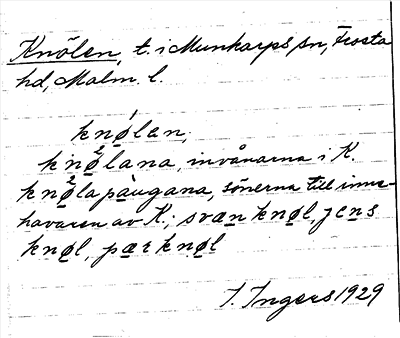 Knölen, t. i Munkarps sn, Frosta
hd, Malm. l.
knølen,
knølana, invånarna i K.
knøla påugana, sönerna till inne-
havaren av K.; svæn knøl, jens
knøl, pær knøl
I. Ingers 1929